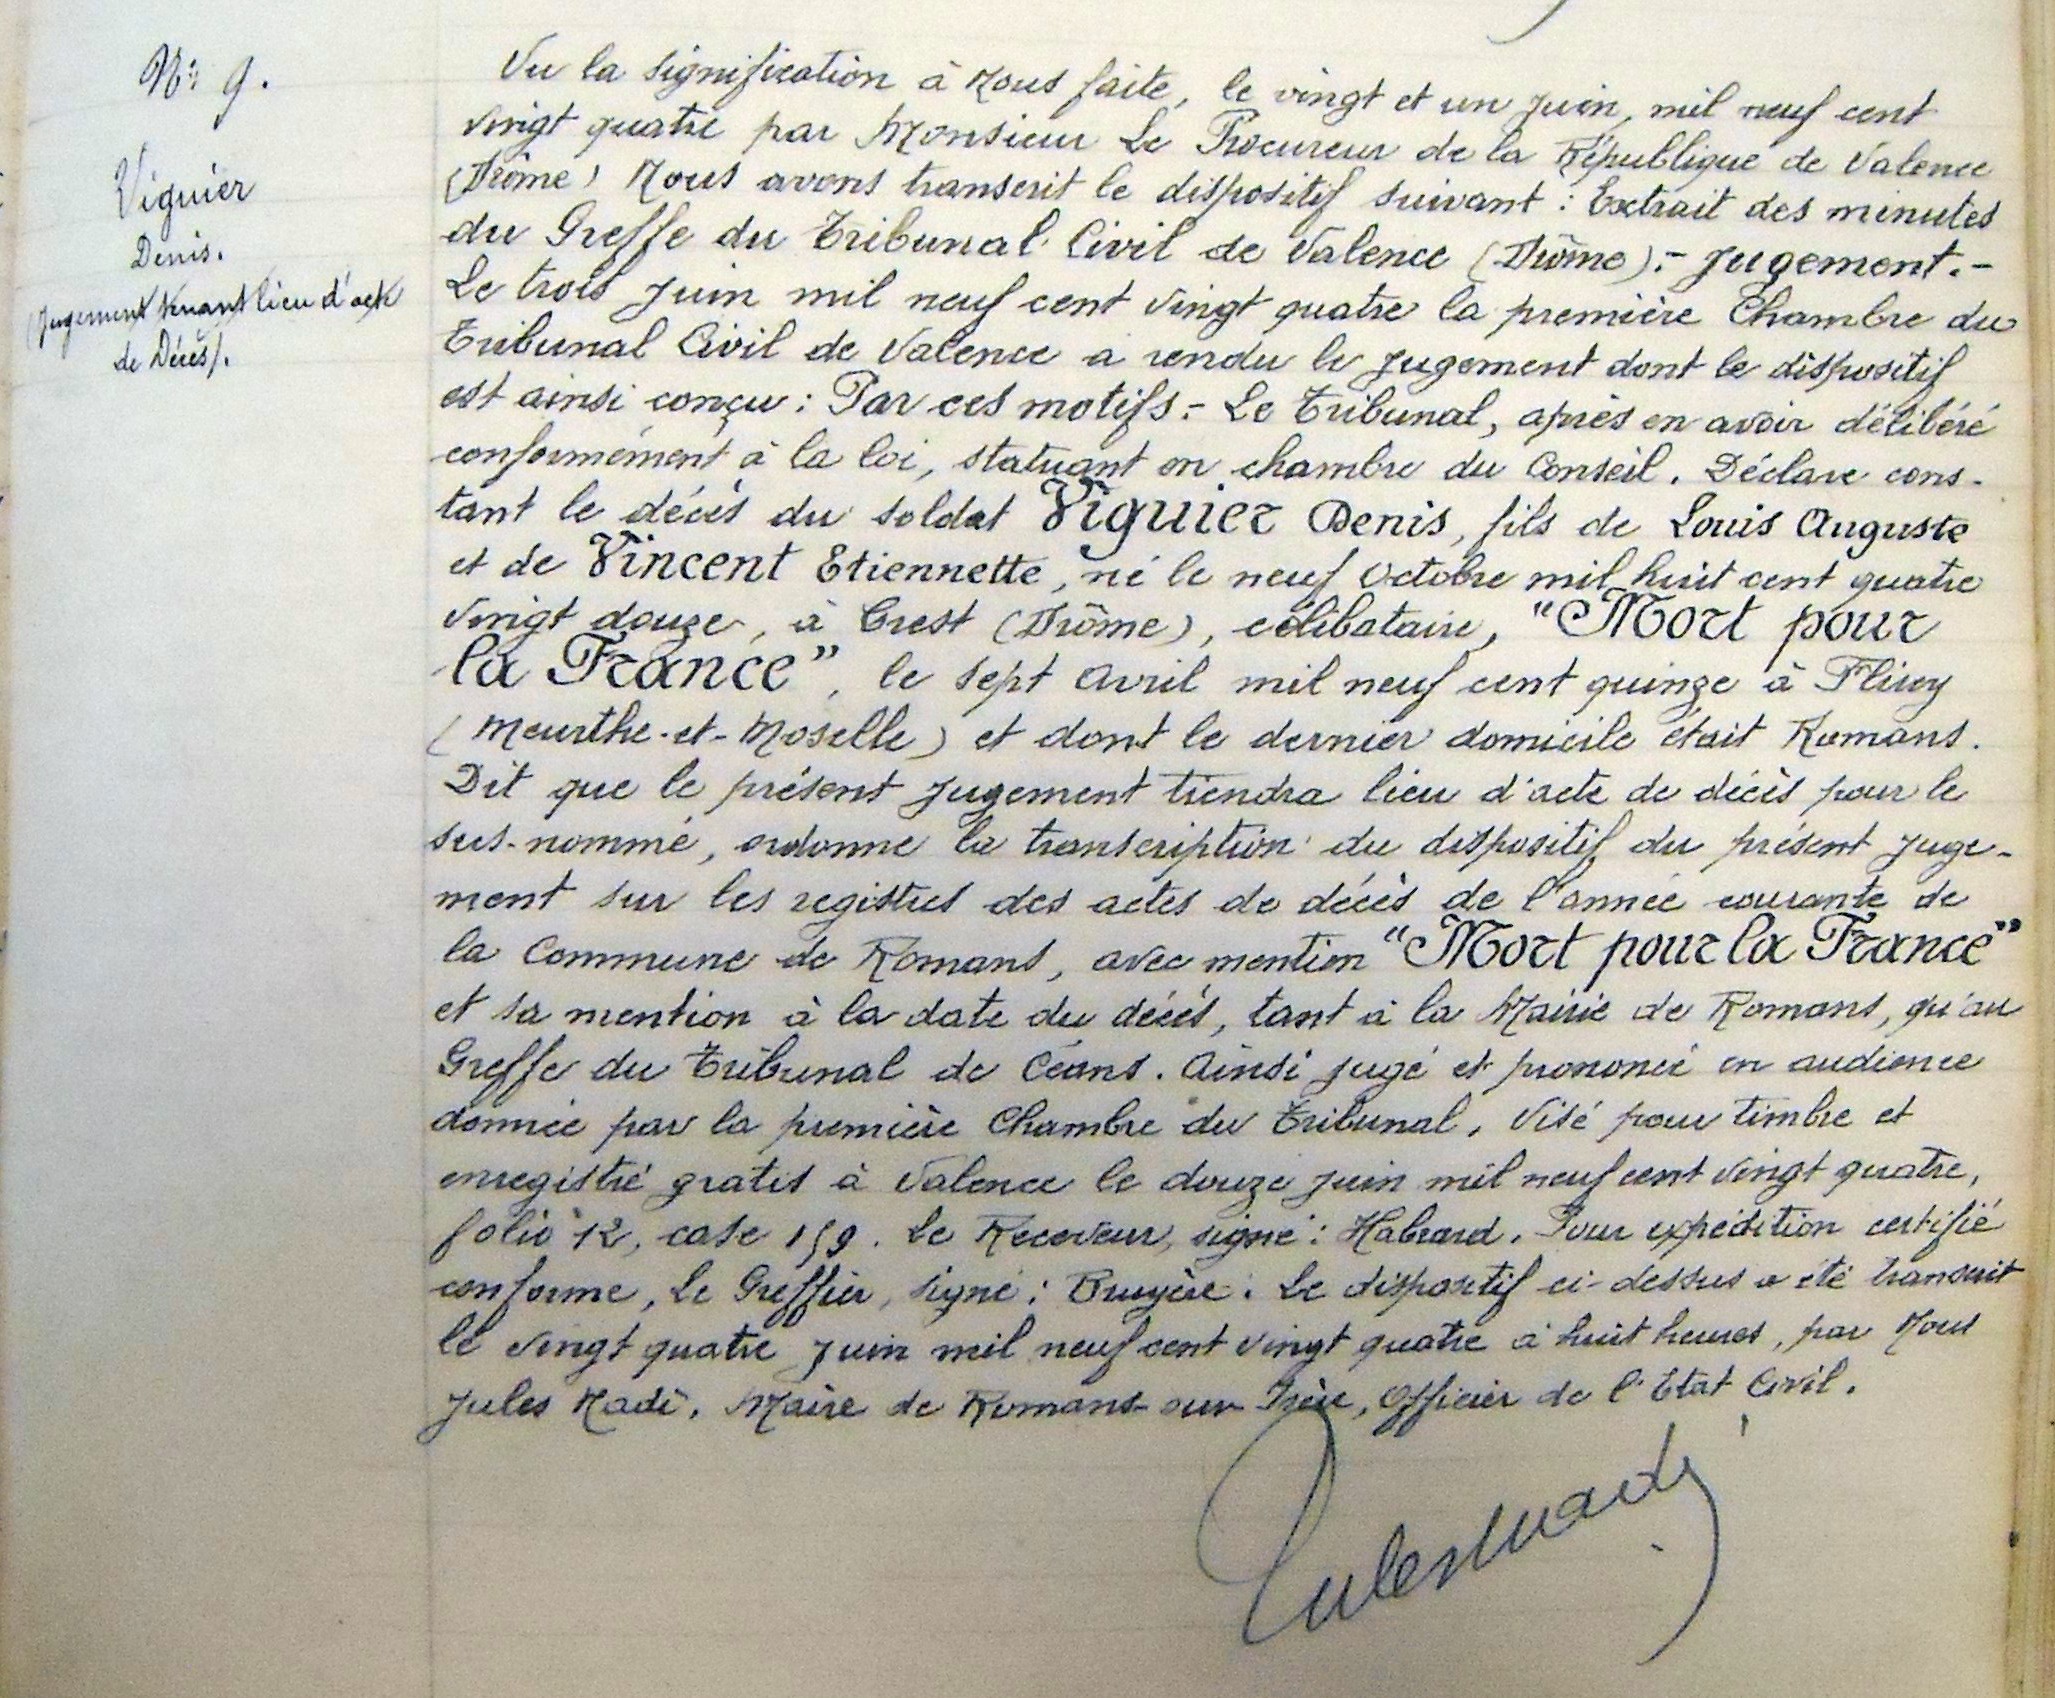 N° 9.
Viguier
Denis.
(Jugement tenant lieu d'acte
de Décès).
Vu la signification à Nous faite, le vingt et un Juin, mil neuf cent
vingt quatre par Monsieur Le Procureur de la République de Valence
(Drôme) Nous avons transcrit le dispositif suivant : Extrait des minutes
du Greffe du Tribunal Civil de Valence (Drôme).- Jugement.-
Le trois Juin mil neuf cent vingt quatre la première Chambre du
Tribunal Civil de Valence a rendu le Jugement dont le dispositif
est ainsi conçu : Par ces motifs.- Le Tribunal, après en avoir délibéré
conformément à la loi, statuant en chambre du Conseil. Déclare cons-
tant le décès du soldat Viguier Denis, fils de Louis Auguste
et de Vincent Etiennette, né le neuf Octobre mil huit cent quatre
vingt douze, à Crest (Drôme), célibataire, "Mort pour
la France", le sept Avril mil neuf cent quinze à Flirey
(Meurthe-et-Moselle) et dont le dernier domicile était Romans.
Dit que le présent Jugement tiendra lieu d'acte de décès pour le
sus-nommé, ordonne la transcription du dispositif du présent Juge-
ment sur les registres des actes de décès de l'année courante de
la Commune de Romans, avec mention "Mort pour la France"
et sa mention à la date du décès, tant à la Mairie de Romans, qu'au
Greffe du Tribunal de Céans. Ainsi jugé et prononcé en audience
donnée par la première Chambre du Tribunal. Visé pour timbre et
enregistré gratis à Valence le douze Juin mil neuf cent vingt quatre,
folio 12, case 159. Le Receveur, signé : Habrard. Pour expédition certifié
conforme, Le Greffier, signé : Bruyère. Le dispositif ci-dessus a été transcrit
le vingt quatre Juin mil neuf cent vingt quatre à huit heures, par Nous
Jules Nadi, Maire de Romans-sur-Isère, Officier de l'Etat Civil.
Jules Nadi